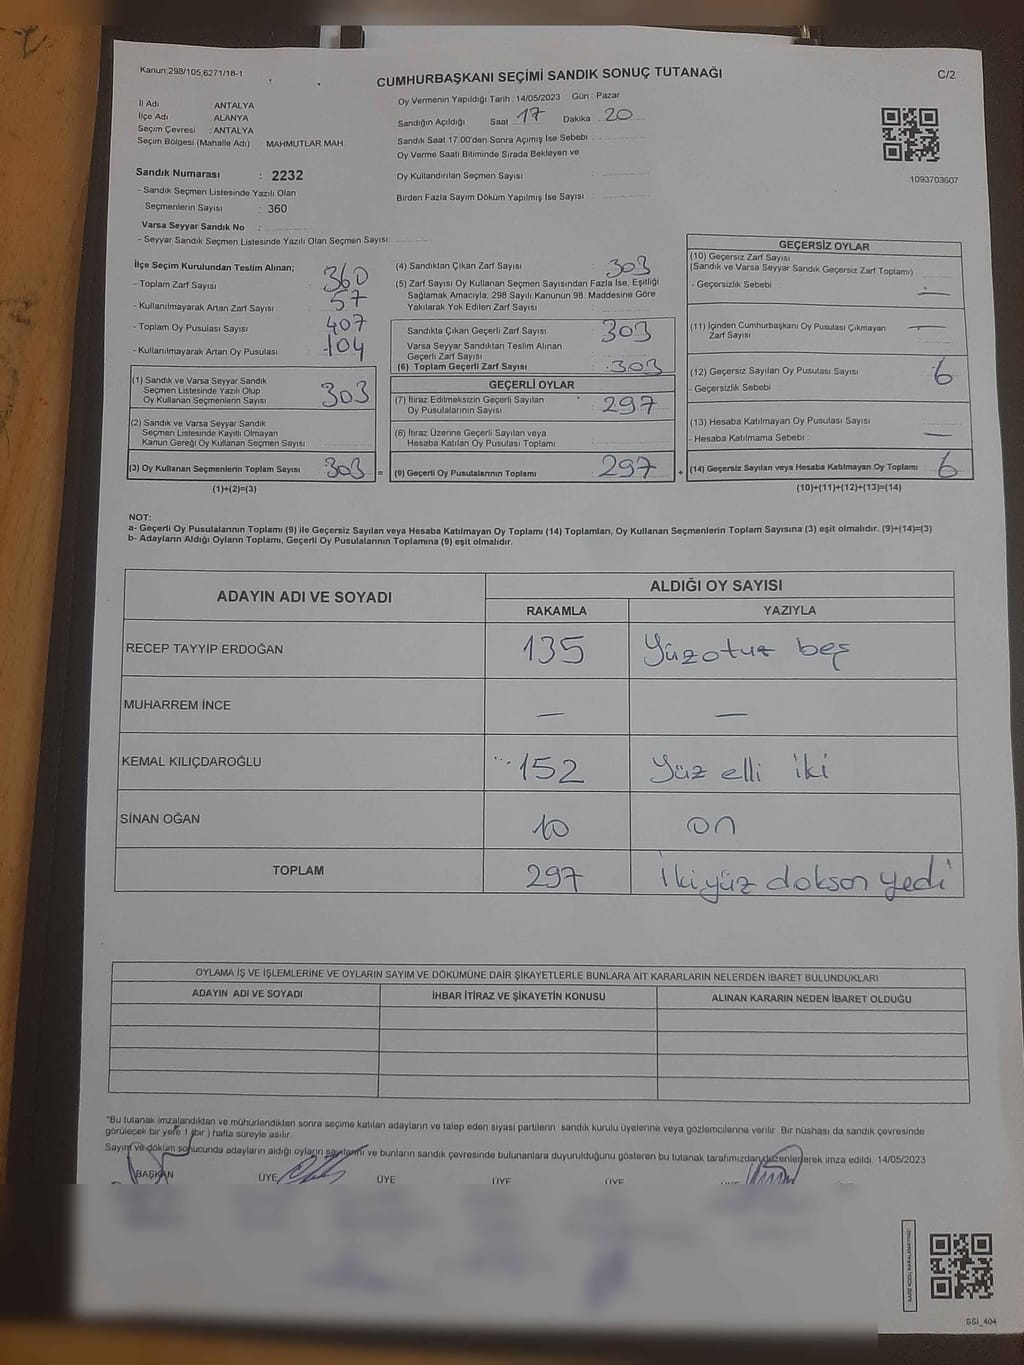 Kanun;298/105,6271/18-1
CUMHURBAŞKANI SEÇİMİ SANDIK SONUÇ TUTANAĞI
C/2
İl Adı : ANTALYA
İlçe Adı : ALANYA
Seçim Çevresi : ANTALYA
Seçim Bölgesi (Mahalle Adı) MAHMUTLAR MAH.
Oy Vermenin Yapıldığı Tarih : 14/05/2023 Gün : Pazar
Sandığın Açıldığı Saat 17 Dakika 20
Sandık Saat 17:00'den Sonra Açımış İse Sebebi :
Oy Verme Saati Bitiminde Sırada Bekleyen ve
Oy Kullandırılan Seçmen Sayısı :
Birden Fazla Sayım Döküm Yapılmış İse Sayısı :
1093703607
Sandık Numarası : 2232
- Sandık Seçmen Listesinde Yazılı Olan
Seçmenlerin Sayısı : 360
Varsa Seyyar Sandık No :
- Seyyar Sandık Seçmen Listesinde Yazılı Olan Seçmen Sayısı:
İlçe Seçim Kurulundan Teslim Alınan;
- Toplam Zarf Sayısı : 360
- Kullanılmayarak Artan Zarf Sayısı : 57
- Toplam Oy Pusulası Sayısı : 407
- Kullanılmayarak Artan Oy Pusulası : 104
(1) Sandık ve Varsa Seyyar Sandık
Seçmen Listesinde Yazılı Olup
Oy Kullanan Seçmenlerin Sayısı : 303
(2) Sandık ve Varsa Seyyar Sandık
Seçmen Listesinde Kayıtlı Olmayan
Kanun Gereği Oy Kullanan Seçmen Sayısı :
(3) Oy Kullanan Seçmenlerin Toplam Sayısı : 303 =
(1)+(2)=(3)
(4) Sandıktan Çıkan Zarf Sayısı : 303
(5) Zarf Sayısı Oy Kullanan Seçmen Sayısından Fazla İse, Eşitliği
Sağlamak Amacıyla; 298 Sayılı Kanunun 98. Maddesine Göre
Yakılarak Yok Edilen Zarf Sayısı :
Sandıkta Çıkan Geçerli Zarf Sayısı : 303
Varsa Seyyar Sandıktan Teslim Alınan
Geçerli Zarf Sayısı :
(6) Toplam Geçerli Zarf Sayısı : 303
GEÇERLİ OYLAR
(7) İtiraz Edilmeksizin Geçerli Sayılan
Oy Pusulalarının Sayısı : 297
(6) İtiraz Üzerine Geçerli Sayılan veya
Hesaba Katılan Oy Pusulası Toplamı :
(9) Geçerli Oy Pusulalarının Toplamı : 297 +
GEÇERSİZ OYLAR
(10) Geçersiz Zarf Sayısı
(Sandık ve Varsa Seyyar Sandık Geçersiz Zarf Toplamı)
- Geçersizlik Sebebi : —
(11) İçinden Cumhurbaşkanı Oy Pusulası Çıkmayan
Zarf Sayısı : —
(12) Geçersiz Sayılan Oy Pusulası Sayısı : 6
- Geçersizlik Sebebi :
(13) Hesaba Katılmayan Oy Pusulası Sayısı
- Hesaba Katılmama Sebebi : —
(14) Geçersiz Sayılan veya Hesaba Katılmayan Oy Toplamı : 6
(10)+(11)+(12)+(13)=(14)
NOT:
a- Geçerli Oy Pusulalarının Toplamı (9) ile Geçersiz Sayılan veya Hesaba Katılmayan Oy Toplamı (14) Toplamları, Oy Kullanan Seçmenlerin Toplam Sayısına (3) eşit olmalıdır. (9)+(14)=(3)
b- Adayların Aldığı Oyların Toplamı, Geçerli Oy Pusulalarının Toplamına (9) eşit olmalıdır.
ADAYIN ADI VE SOYADI
ALDIĞI OY SAYISI
RAKAMLA YAZIYLA
RECEP TAYYİP ERDOĞAN 135 Yüzotuz beş
MUHARREM İNCE — —
KEMAL KILIÇDAROĞLU 152 Yüz elli iki
SİNAN OĞAN 10 on
TOPLAM 297 İkiyüz dokson yedi
OYLAMA İŞ VE İŞLEMLERİNE VE OYLARIN SAYIM VE DÖKÜMÜNE DAİR ŞİKAYETLERLE BUNLARA AİT KARARLARIN NELERDEN İBARET BULUNDUKLARI
ADAYIN ADI VE SOYADI İHBAR İTİRAZ VE ŞİKAYETİN KONUSU ALINAN KARARIN NEDEN İBARET OLDUĞU
*Bu tutanak imzalandıktan ve mühürlendikten sonra seçime katılan adayların ve talep eden siyasi partilerin sandık kurulu üyelerine veya gözlemcilerine verilir. Bir nüshası da sandık çevresinde
görülecek bir yere 1 (bir ) hafta süreyle asılır.
Sayım ve döküm sonucunda adayların aldığı oyların sayılarını ve bunların sandık çevresinde bulunanlara duyurulduğunu gösteren bu tutanak tarafımızdan düzenlenerek imza edildi. 14/05/2023
BAŞKAN ÜYE ÜYE ÜYE ÜYE ÜYE
SSI_404